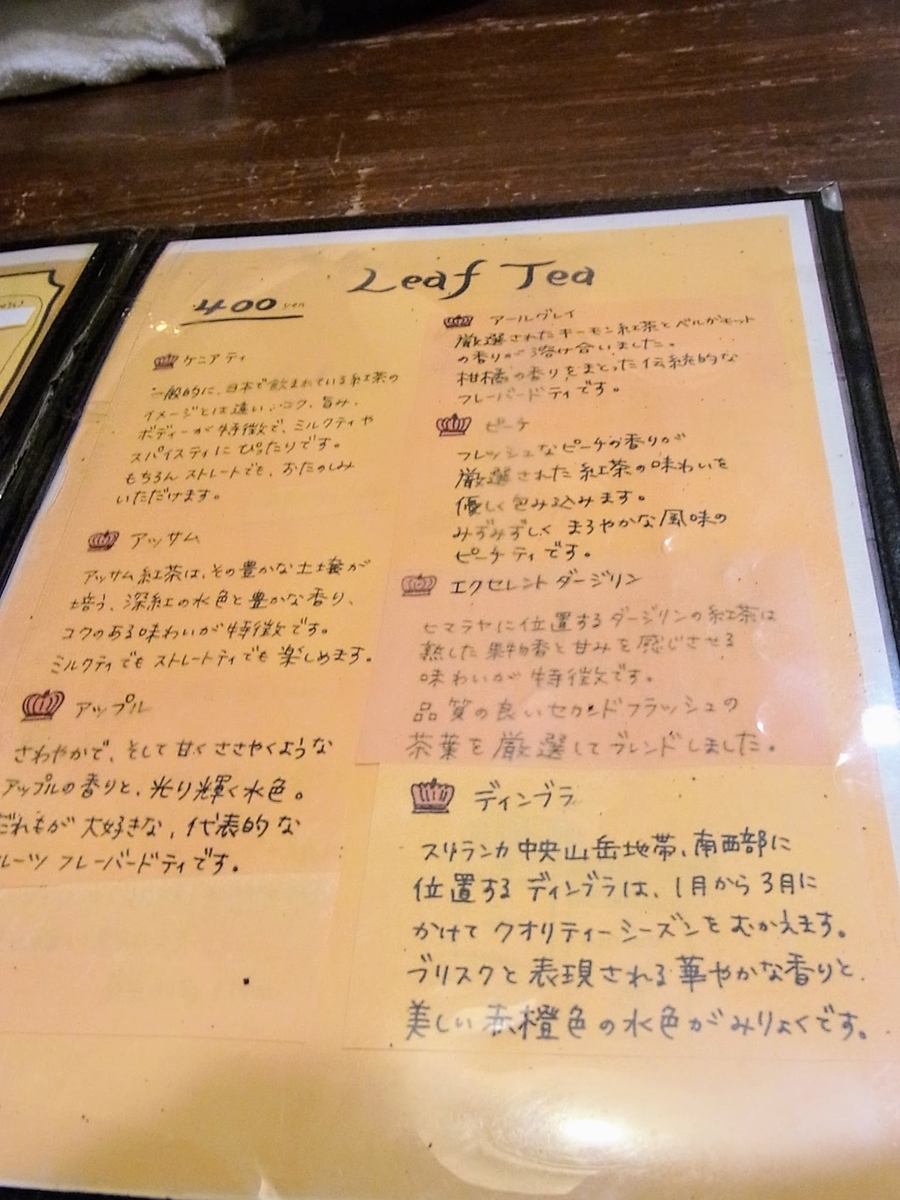 Leaf Tea
400 yen
ケニアティ
一般的に、日本で飲まれている紅茶の
イメージとは違い、コク、旨み、
ボディーが特徴で、ミルクティや
スパイスティにぴったりです。
もちろんストレートでも、おたのしみ
いただけます。
アッサム
アッサム紅茶は、その豊かな土壌が
培う、深紅の水色と豊かな香り、
コクのある味わいが特徴です。
ミルクティでもストレートティでも楽しめます。
アップル
さわやかで、そして甘くささやくような
アップルの香りと、光り輝く水色。
だれもが大好きな、代表的な
ルーツフレーバードティです。
アールグレイ
厳選されたキーモン紅茶とベルガモット
の香りが溶け合いました。
柑橘の香りをまとった伝統的な
フレーバードティです。
ピーチ
フレッシュなピーチの香りが
厳選された紅茶の味わいを
優しく包み込みます。
みずみずしくまろやかな風味の
ピーチティです。
エクセレントダージリン
ヒマラヤに位置するダージリンの紅茶は
熟した果物香と甘みを感じさせる
味わいが特徴です。
品質の良いセカンドフラッシュの
茶葉を厳選してブレンドしました。
ディンブラ
スリランカ中央山岳地帯、南西部に
位置するディンブラは、1月から3月に
かけてクオリティーシーズンをむかえます。
ブリスクと表現される華やかな香りと、
美しい赤橙色の水色がみりょくです。